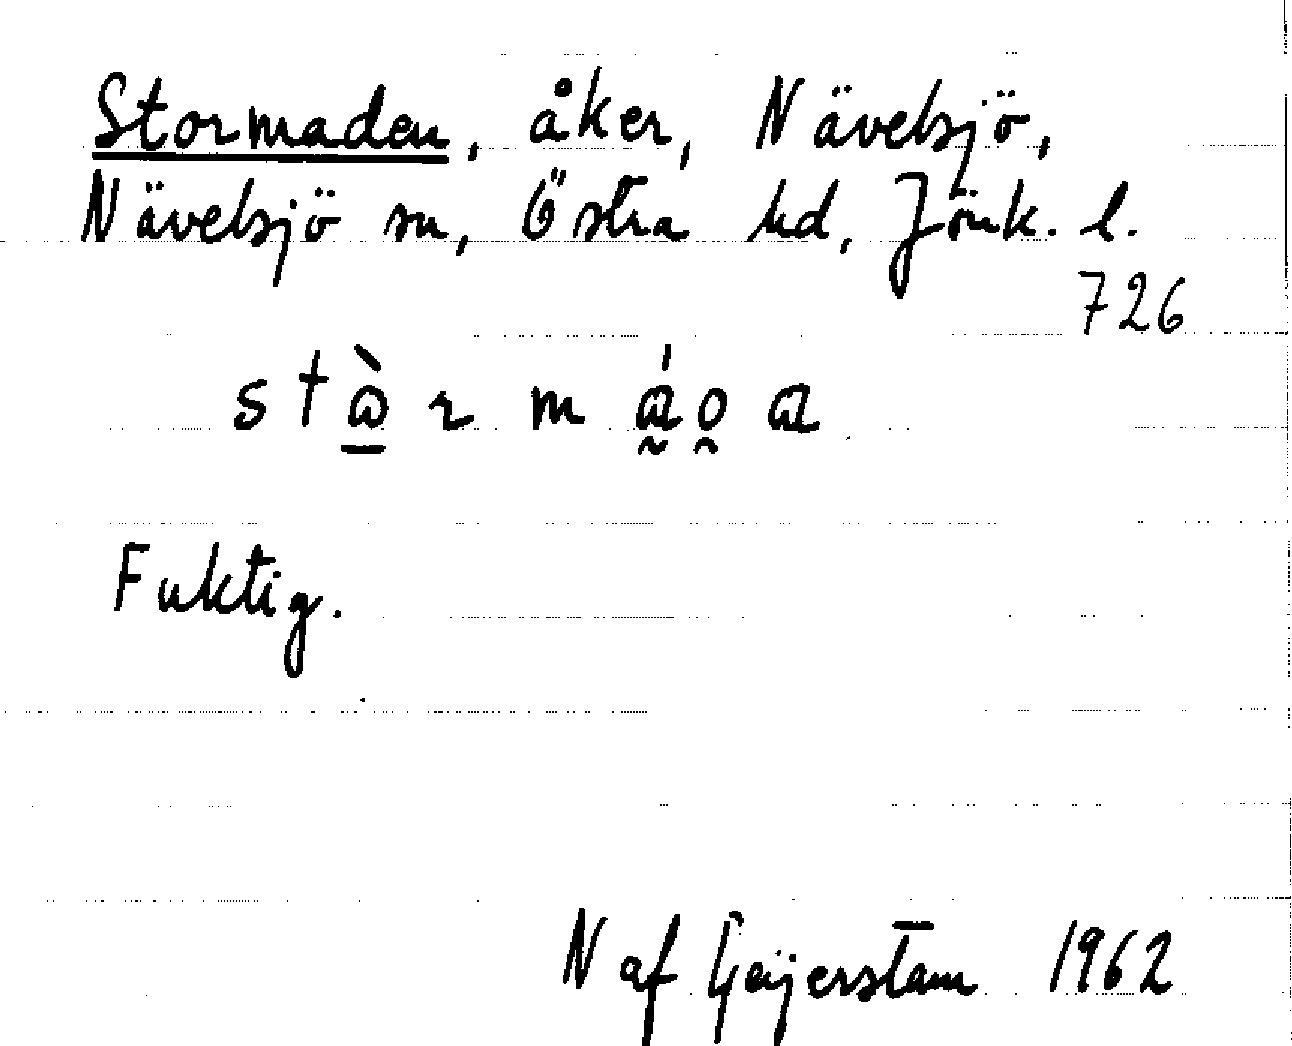 Stormaden, åker, Nävelsjö,
Nävelsjö sn, Östra hd, Jönk. l.
726
Fuktig.
N af Geijerstam 1962